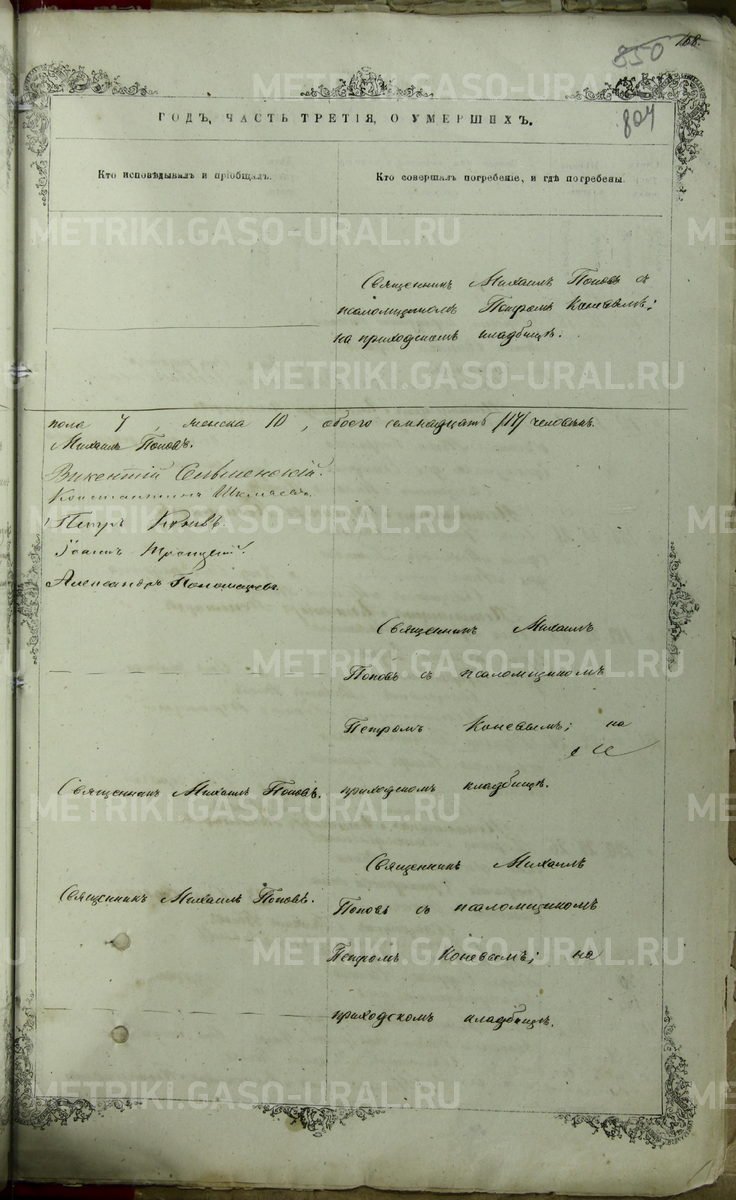 168.
850
804
ГОДЪ, ЧАСТЬ ТРЕТІЯ, О УМЕРШИХЪ.
Кто исповѣдывалъ и пріобщалъ.
Кто совершалъ погребеніе, и гдѣ погребены.
Священникъ Михаилъ Поповъ съ
псаломщикомъ Петромъ Коневымъ;
на приходскомъ кладбищѣ.
пола 7, женска 10, обоего семнадцать /17/ человѣкъ.
Михаилъ Поповъ.
Викентій
Константинъ
Петръ Коневъ.
Іоаннъ Троицкій.
Александръ
Священникъ Михаилъ
Поповъ съ псаломщикомъ
Петромъ Коневымъ; на
приходскомъ кладбищѣ.
Священникъ Михаилъ Поповъ.
Священникъ Михаилъ
Поповъ съ псаломщикомъ
Петромъ Коневымъ; на
приходскомъ кладбищѣ.
Священникъ Михаилъ Поповъ.
METRIKI.GASO-URAL.RU